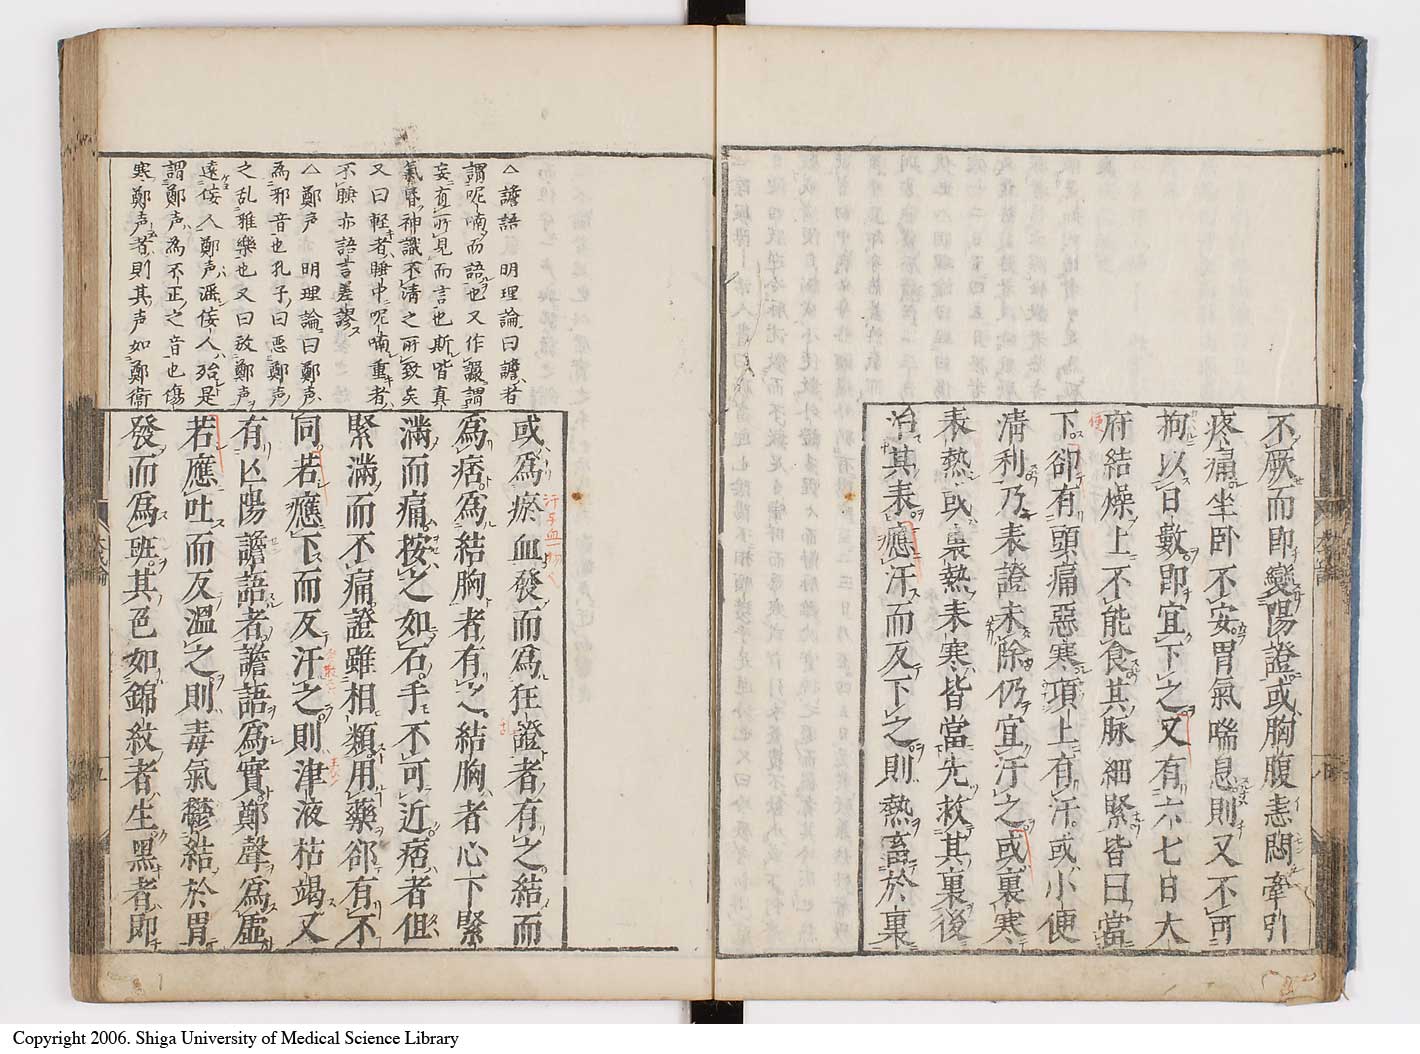 不厥而即變陽證或胸腹恚悶牽引
疼痛坐卧不安胃氣喘息則又不可
拘以日數即宜下之又有六七日大
府結燥上不能食其脉細緊皆曰當
下卻有頭痛惡寒項上有汗或小便
清利乃表證未除仍宜汗之或裏寒
表熱或裏熱表寒皆當先救其裏後
治其表應汗而反下之則熱畜於裏
△譫語 明理論曰譫者
謂呢喃而語也又作讝謂
妄有所見而言也斯皆真
氣昏神識不清之所致矣
又曰軽者睡中呢喃重者
不睡亦語言差謬
△鄭声 明理論曰鄭声
為邪音也孔子曰悪鄭声
之乱雅樂也又曰放鄭声
遠佞人鄭声滛佞人殆是
謂鄭声為不正之音也傷
寒鄭声者則其声如鄭衛
或爲瘀血發而爲狂證者有之結而
爲痞爲結胸者有之結胸者心下緊
滿而痛按之如石手不可近痞者但
緊滿而不痛證雖相類用藥卻有不
同若應下而反汗之則津液枯竭又
有亾陽譫語者譫語爲實鄭聲爲虛
若應吐而反溫之則毒氣鬱結於胃
發而爲斑其色如錦紋者生黑者即
Copyright 2006. Shiga University of Medical Science Library